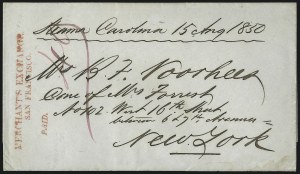 Steamer Carolina 15 Aug 1850
MERCHANT'S EXCHANGE,
SAN FRANCISCO.
PAID.
Mr B. F. Voorhees
Care of Mrs Forrest
No 102 West 16th Street
between 6 & 7th Avenues
New York